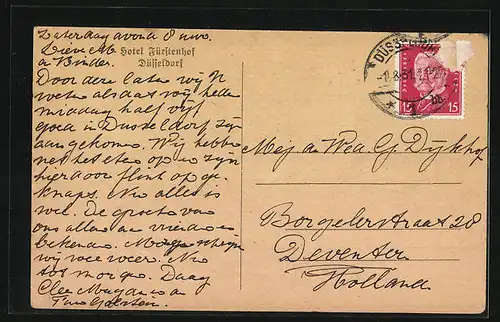 Zaterdag avond 8 uur.
Lieve M
en Binder.
Hotel Fürstenhof
Düsseldorf
Door deze laten wij U
weten als dat wij hede
middag half vijf
goed in Dusseldorf zijn
aangekomen. Wij hebben
net het eten op en zijn
hier voor flink op ge
knapt. Nu alles is
wel. De groeten van
ons allen aan vrienden en
bekenden. Morgen schrijven
wij weer. Nu
tot morgen. Daag
DÜSSELDORF
15 15
Mej. a Wed. G. Dijkhof
Borgelerstraat 28
Deventer
Holland